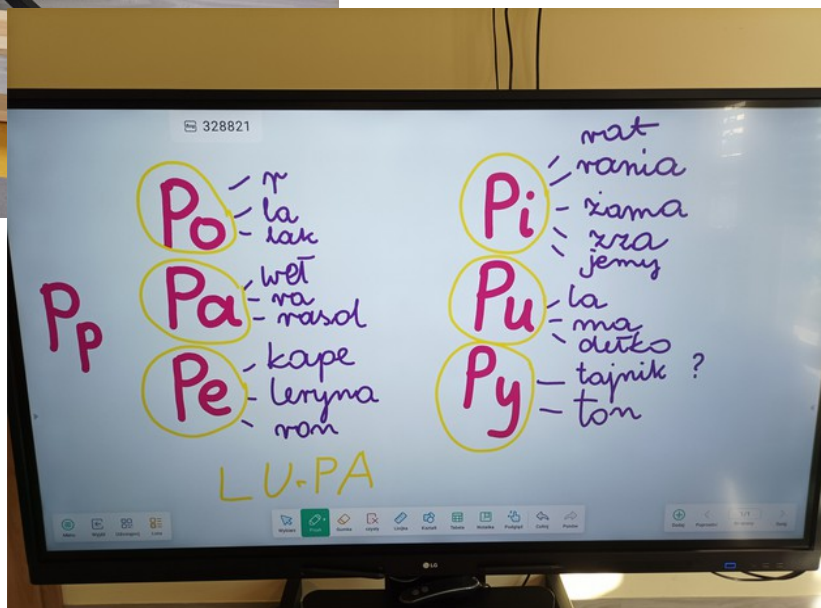 328821
Pp
Po
r
la
lak
Pa
weł
ra
rasol
Pe
kape
leryna
ron
LU.PA
Pi
rat
rania
żama
zza
jemy
Pu
la
ma
dełko
Py
tajnik ?
ton
Menu
Wyjdź
Udostępnij
Wybierz
Pisak
Gumka
czysty
Linijka
Kształt
Tabela
Notatka
Podgląd
Cofnij
Ponów
Dodaj
Poprzedni
1/1
LG